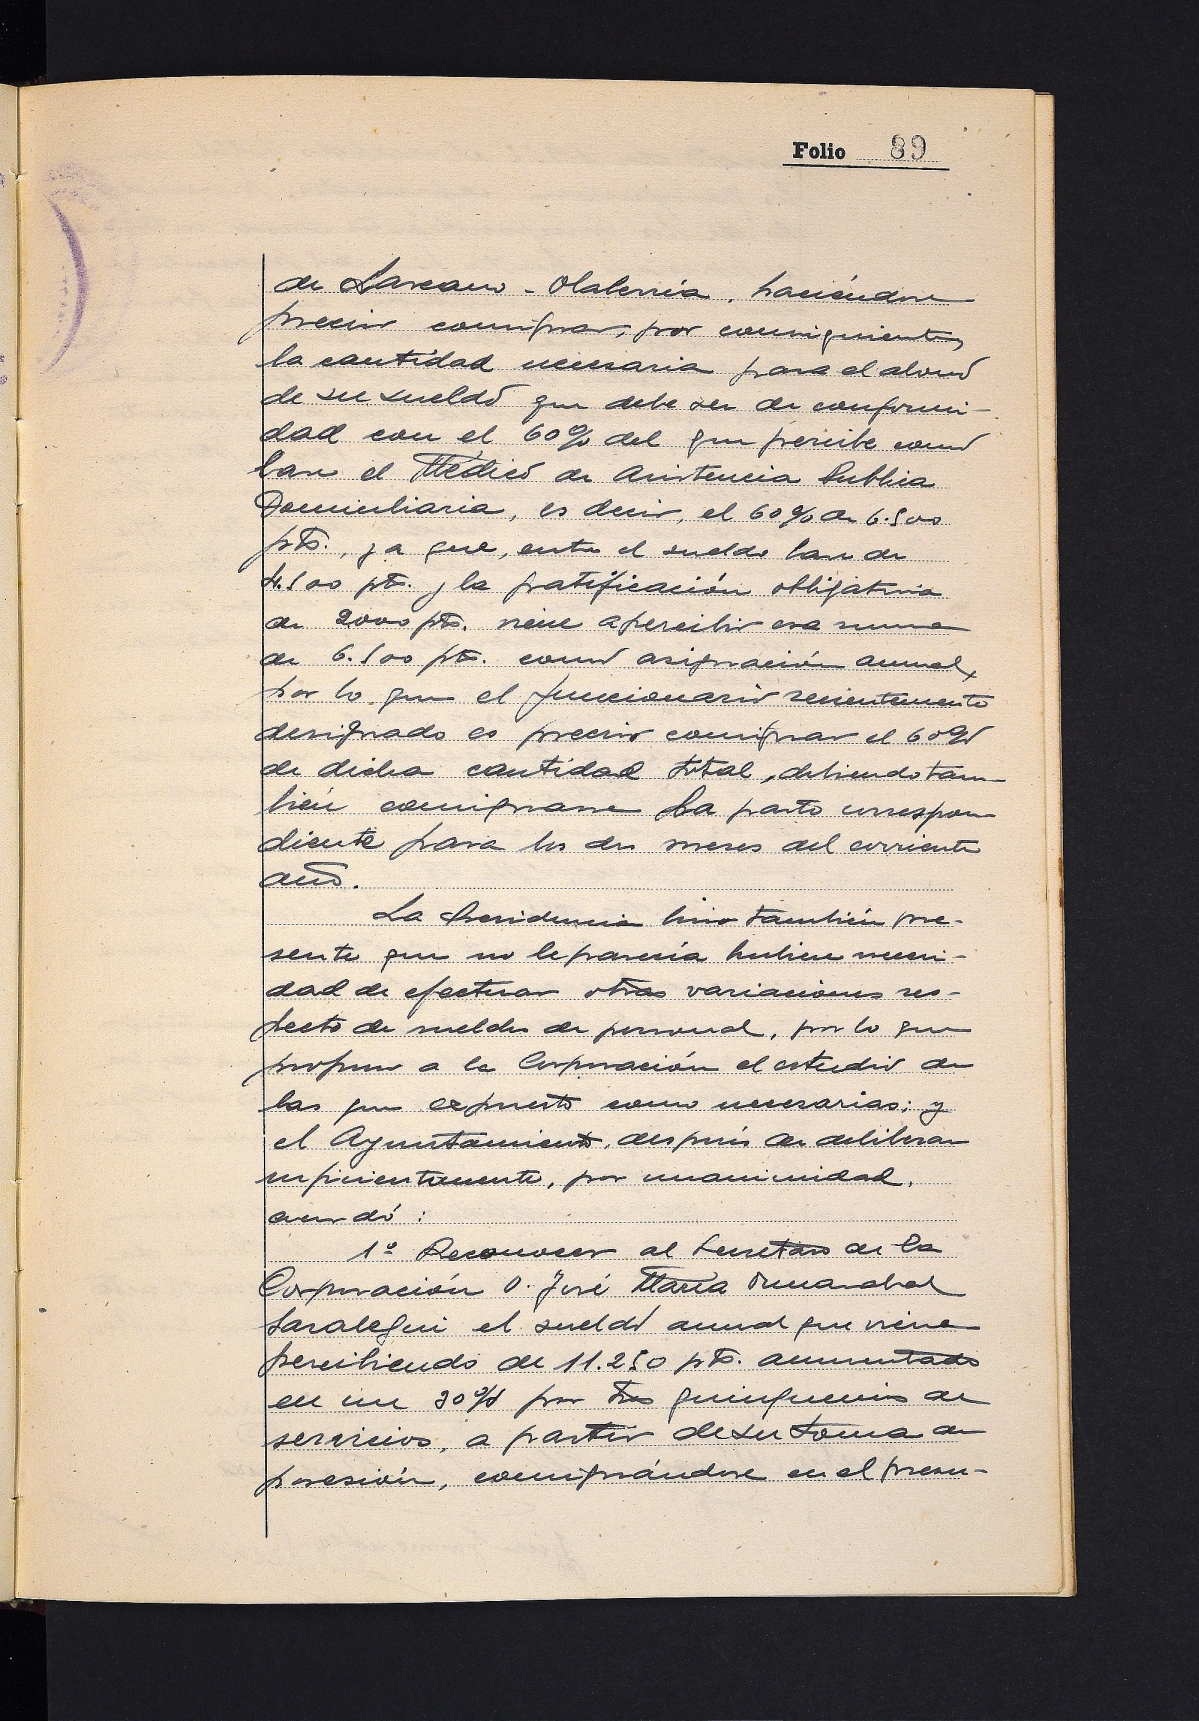 Folio 89
de Lazcano - Olaberria, haciéndose
preciso consignar, por consiguiente,
la cantidad necesaria para el abono
de su sueldo que debe ser de conformi-
dad con el 60% del que percibe como
base el Médico de Asistencia Publica
Domiciliaria, es decir, el 60% de 6.500
pts., ya que, entre el sueldo base de
4.500 pts. y la gratificación obligatoria
de 2000 pts. viene a percibir esa suma
de 6.500 pts. como asignación anual,
por lo que el funcionario recientemente
designado es preciso consignar el 60%
de dicha cantidad total, debiendo tam
bién consignarse la parte correspon
diente para los dos meses del corriente
año.
La Presidencia hizo también pre-
sente que no le parecía hubiese necesi-
dad de efectuar otras variaciones res-
pecto de sueldos de personal, por lo que
propuso a la Corporación el estudio de
las que expuesto como necesarias; y
el Ayuntamiento, después de deliberar
suficientemente, por unanimidad,
acordó:
1º Reconocer al Secretario de la
Corporación D. José María
Saralegui el sueldo anual que viene
percibiendo de 11.250 pts. aumentado
en un 30% por tres quinquenios de
servicios, a partir de su toma de
posesión, consignándose en el presu-